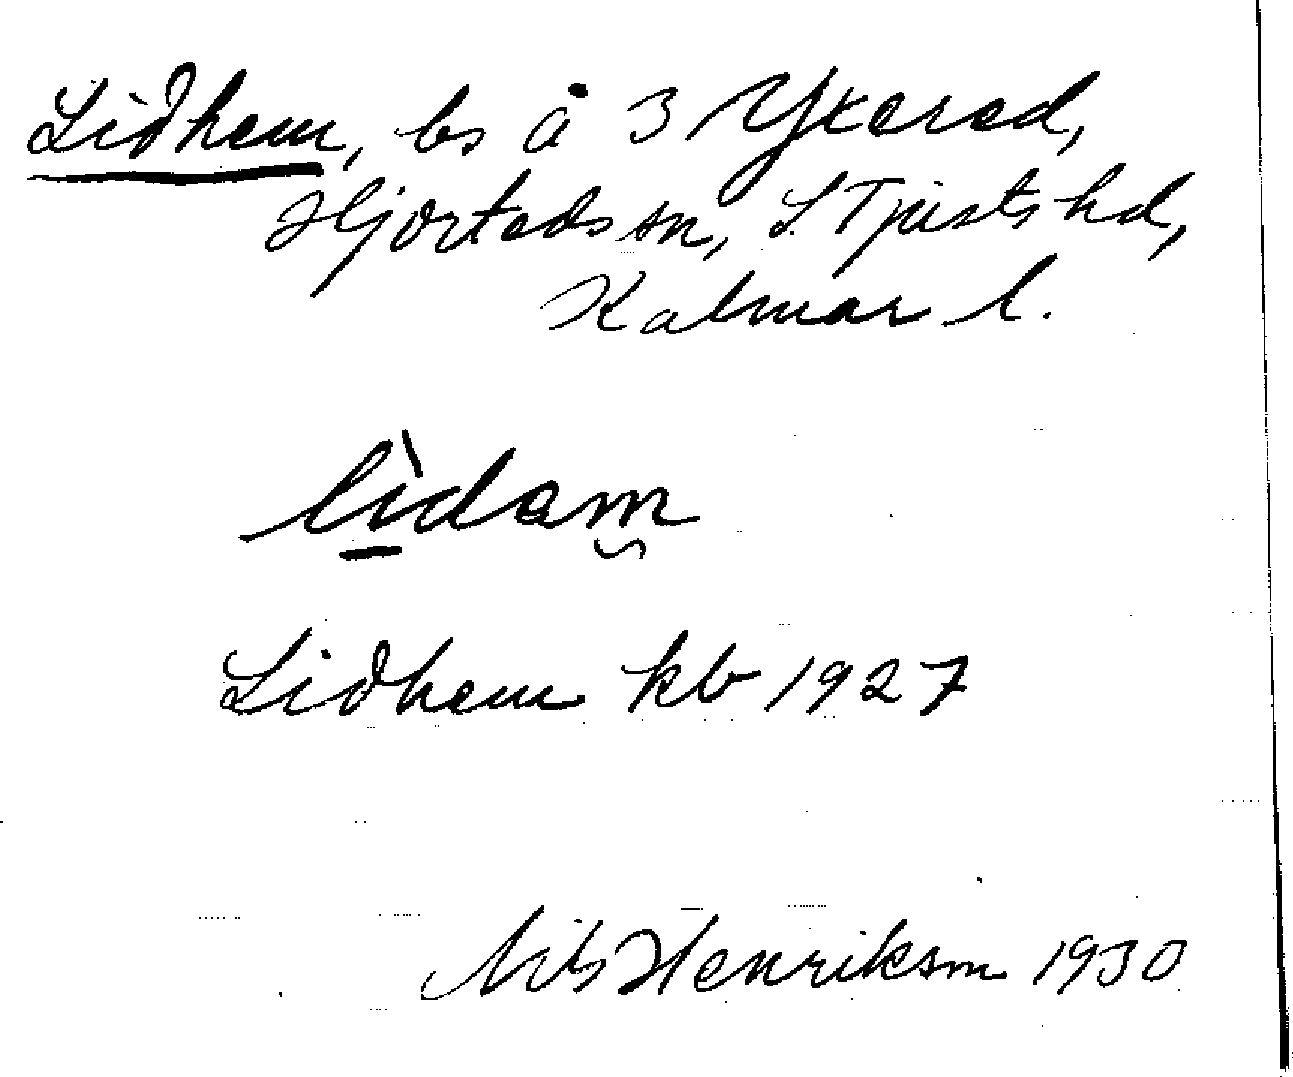 Lidhem, bs å 3 Yxered,
Hjorteds sn, S. Tjusts hd,
Kalmar l.
lìdam
Lidhem kb 1927
Nils Henrikson 1930